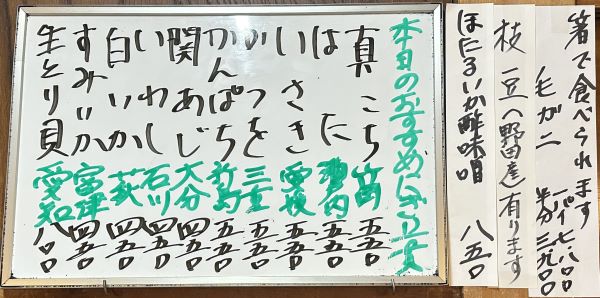 箸で食べられます
毛ガニ 一パイ七、八〇〇
半分 三、九〇〇
枝豆(野田産)有ります
ほたるいか酢味噌 八五〇
本日のおすすめにぎり一貫
真こち 竹岡 五五〇
はた 五五〇
いさき 愛媛 五五〇
かつを 三重 五五〇
かんぱち 五五〇
関あじ 大分 四五〇
いわし 石川 四五〇
白いか 萩 四五〇
すみいか 富津 四五〇
生とり貝 愛知 八〇〇